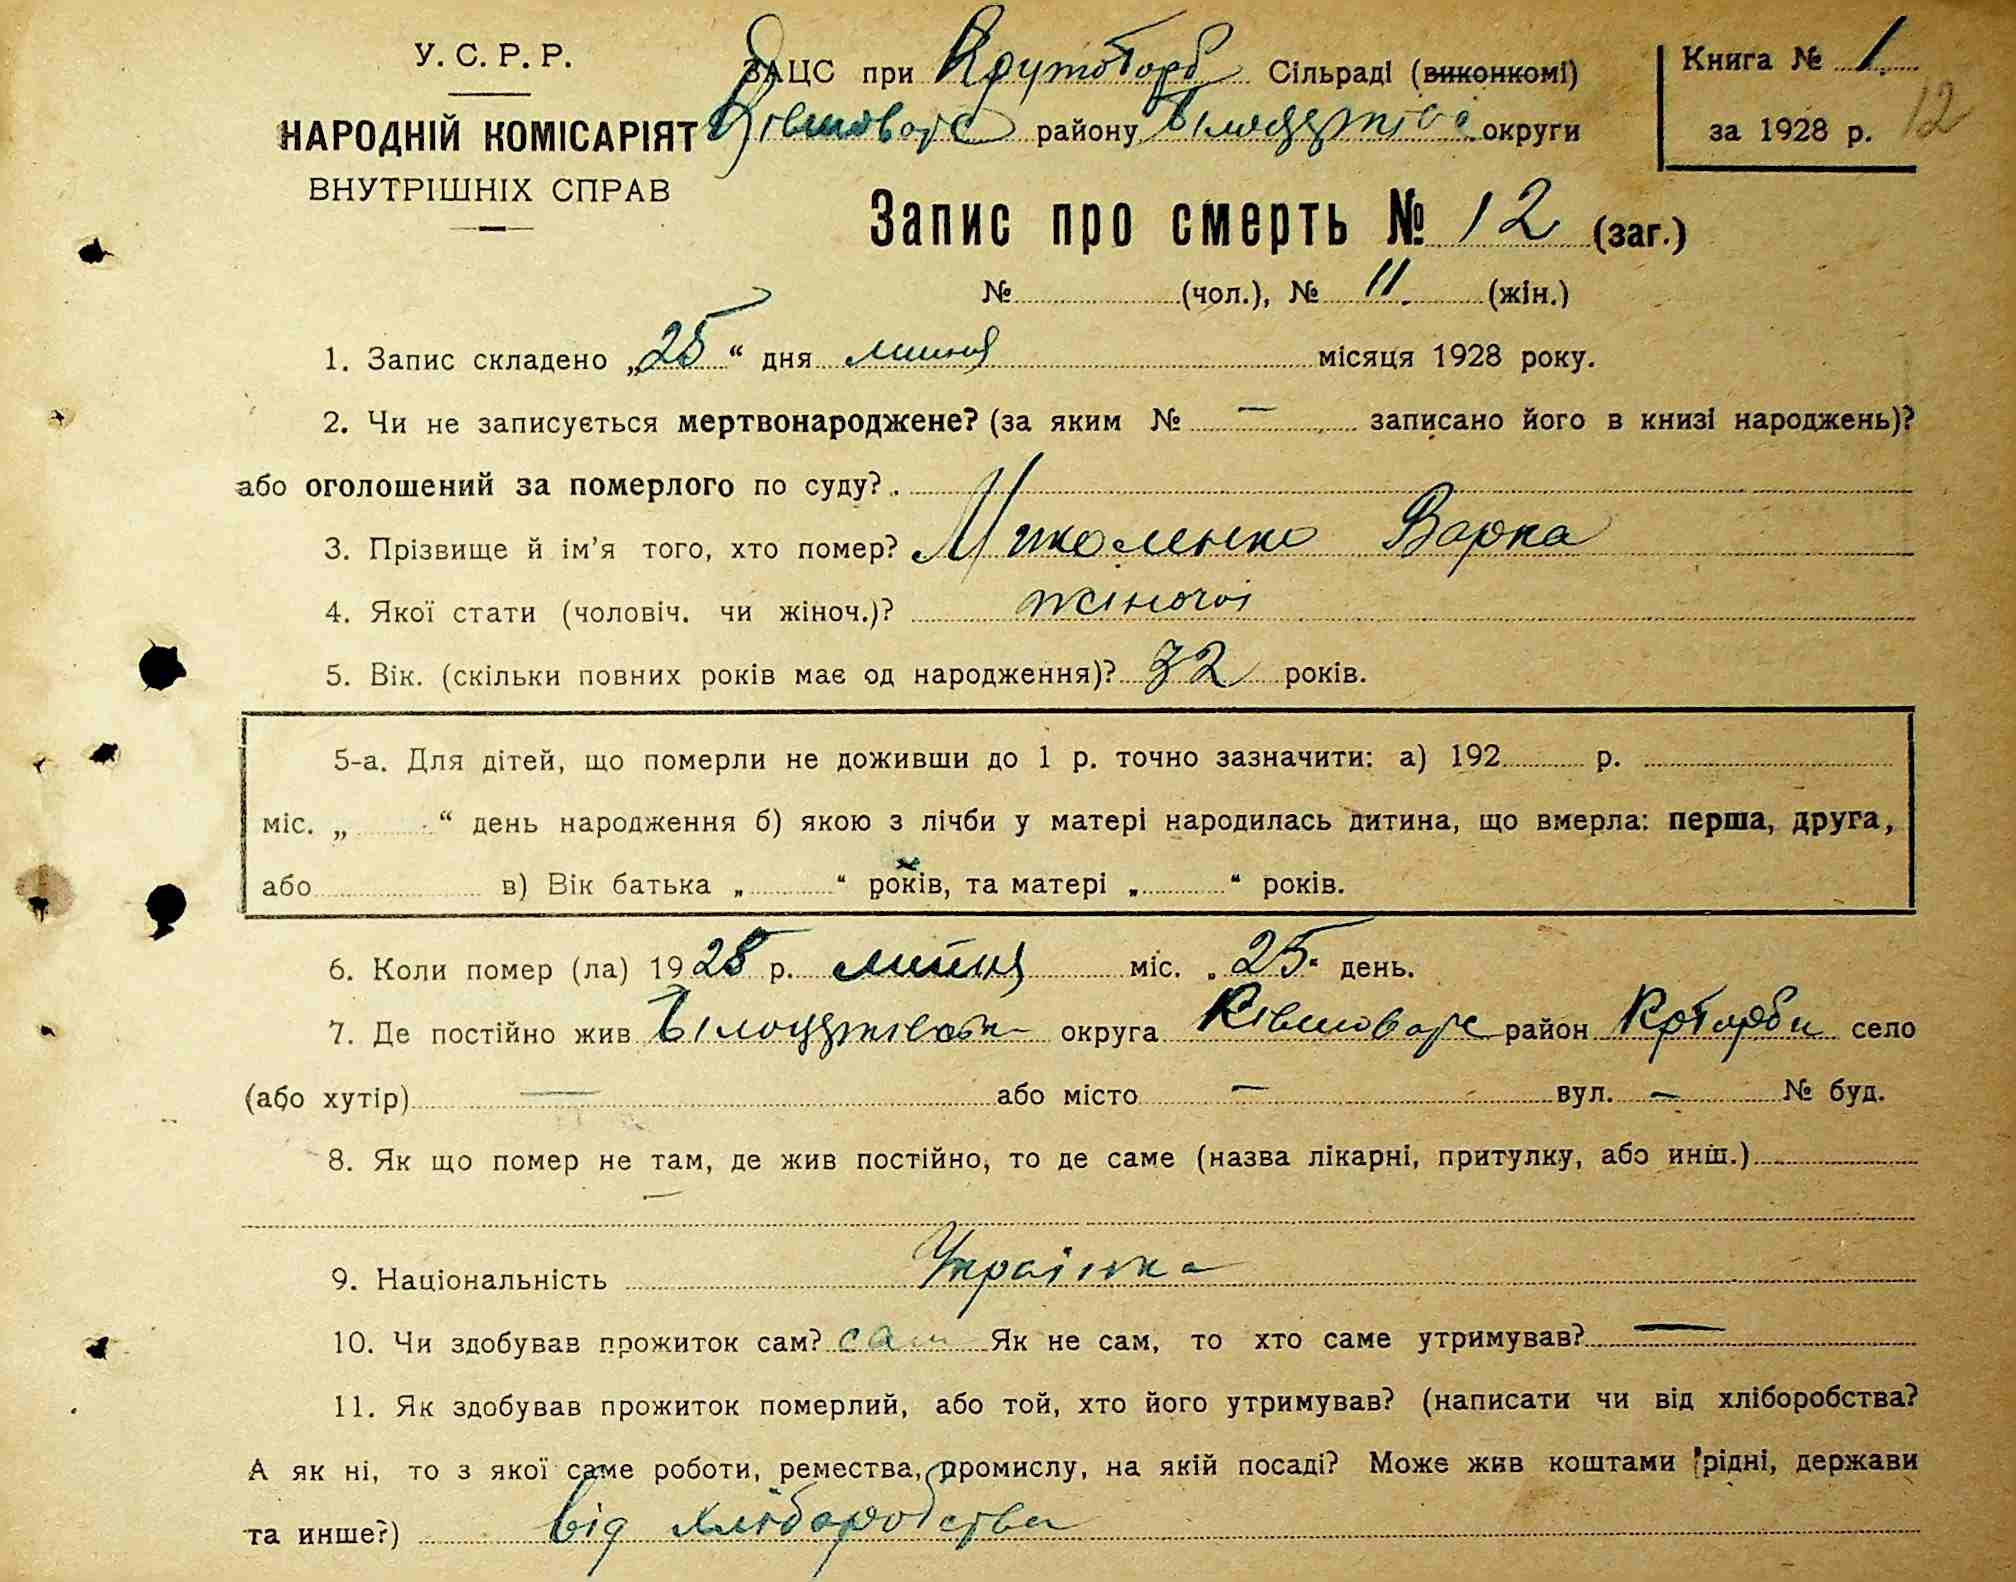 У. С. Р. Р.
НАРОДНІЙ КОМІСАРІЯТ
ВНУТРІШНІХ СПРАВ
ЗАЦС при Крутоборб Сільраді (виконкомі)
Ківшоварс району Білоцерківс округи
Книга № 1.
за 1928 р. 12
Запис про смерть № 12 (заг.)
№ (чол.), № 11. (жін.)
1. Запис складено „25“ дня липня місяця 1928 року.
2. Чи не записується мертвонароджене? (за яким № — записано його в книзі народжень)?
або оголошений за померлого по суду?
3. Прізвище й ім’я того, хто помер? Миколенко Варка
4. Якої стати (чоловіч. чи жіноч.)? жіночоі
5. Вік. (скільки повних років має од народження)? 32 років.
5-а. Для дітей, що померли не доживши до 1 р. точно зазначити: а) 192 р.
міс. „ “ день народження б) якою з лічби у матері народилась дитина, що вмерла: перша, друга,
або в) Вік батька „ “ років, та матері „ “ років.
6. Коли помер (ла) 1928 р. липня міс. „25“ день.
7. Де постійно жив Білоцерківськ округа Ківшоварс район село
(або хутір) — або місто — вул. — № буд.
8. Як що помер не там, де жив постійно, то де саме (назва лікарні, притулку, або инш.)
—
9. Національність Українка
10. Чи здобував прожиток сам? сам Як не сам, то хто саме утримував? —
11. Як здобував прожиток померлий, або той, хто його утримував? (написати чи від хліборобства?
А як ні, то з якої саме роботи, ремества, промислу, на якій посаді? Може жив коштами рідні, держави
та инше?) від хліборобства